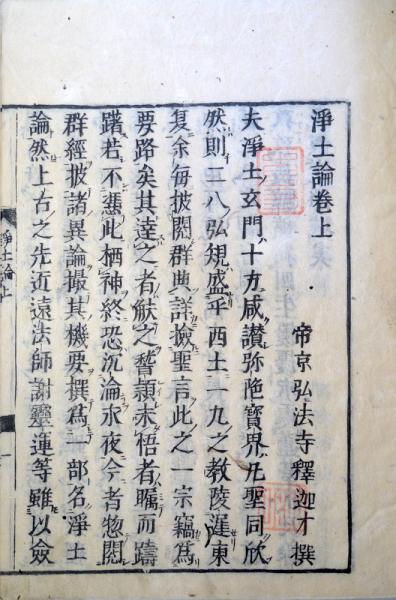 淨土論卷上
帝京弘法寺釋迦才撰
夫淨土玄門十方咸讃弥陁寶界凡聖同欣
然則二八弘規盛乎西土一九之教陵遲東
夏余每披閱群典詳撿聖言此之一宗竊爲
要路矣其達之者觖之瞥頴未悟者矚而躊
躇若不慿此栖神終恐沉淪永夜今者惣閱
群經披諸異論撮其機要撰爲一部名淨土
論然上古之先近遠法師謝靈運等雖以僉
淨土論上